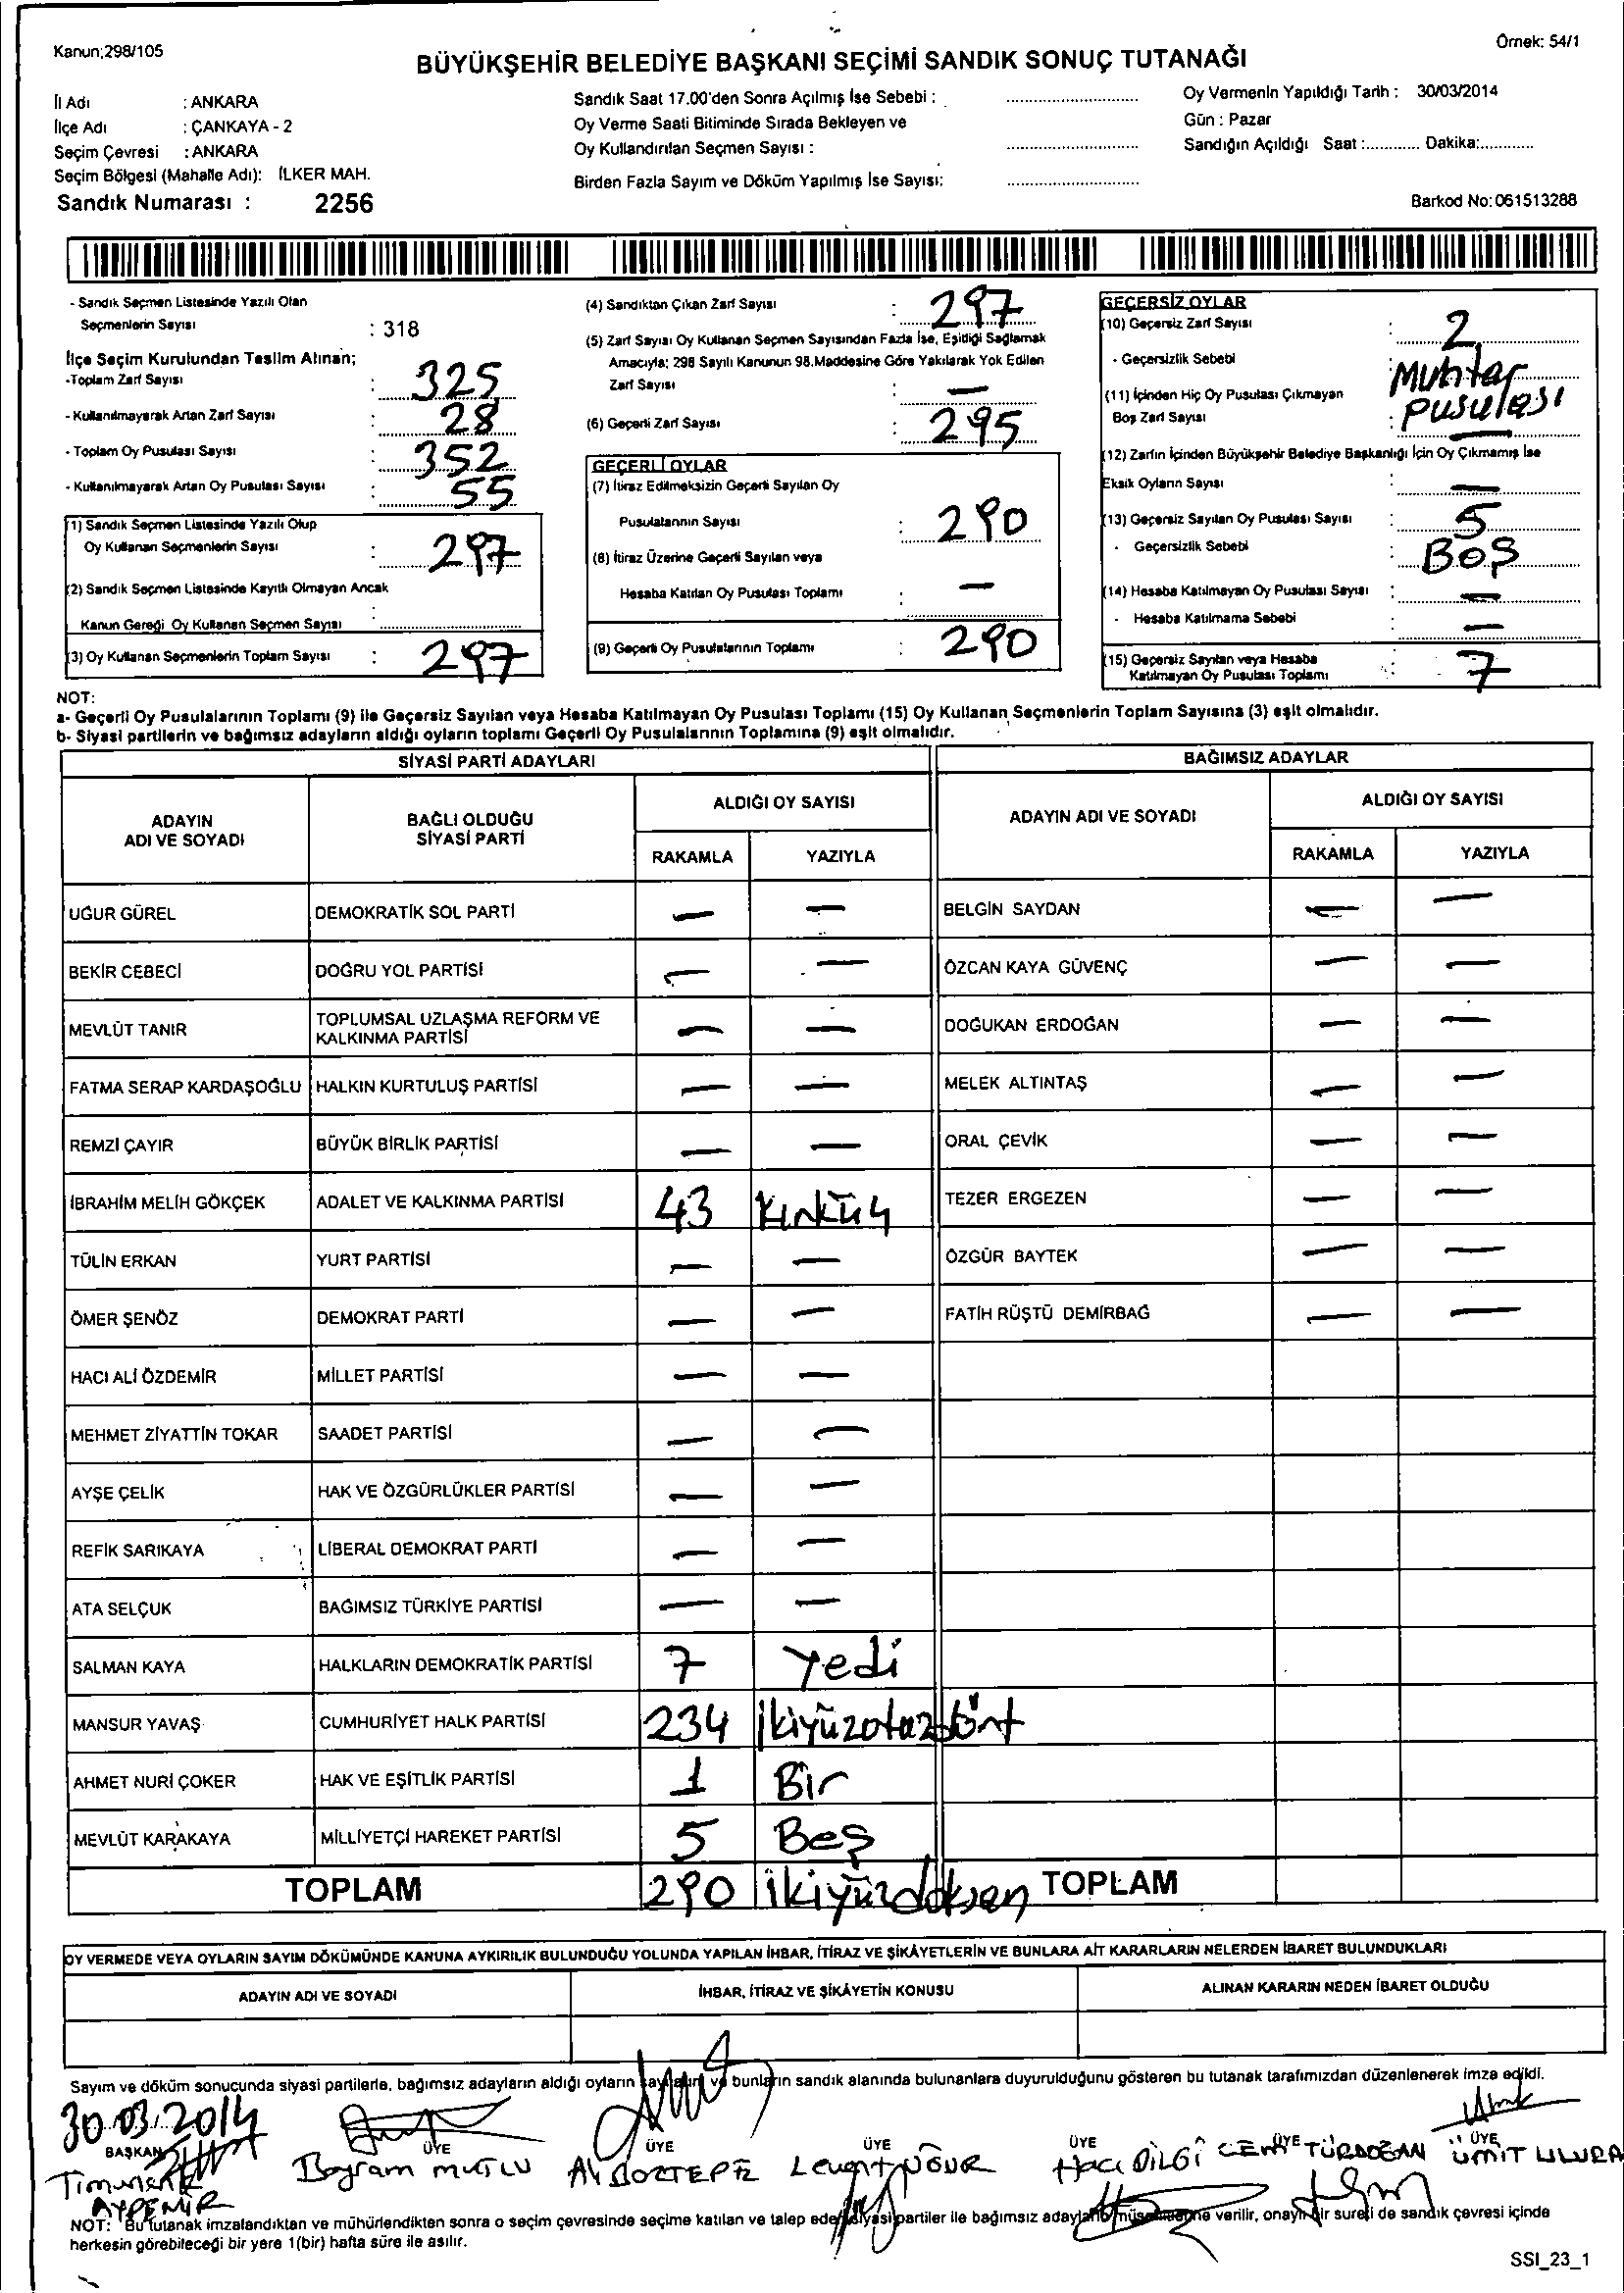 Kanun;298/105
Örnek: 54/1
BÜYÜKŞEHİR BELEDİYE BAŞKANI SEÇİMİ SANDIK SONUÇ TUTANAĞI
İl Adı : ANKARA
İlçe Adı : ÇANKAYA - 2
Seçim Çevresi : ANKARA
Seçim Bölgesi (Mahalle Adı): İLKER MAH.
Sandık Numarası : 2256
Sandık Saat 17.00'den Sonra Açılmış İse Sebebi :
Oy Verme Saati Bitiminde Sırada Bekleyen ve
Oy Kullandırılan Seçmen Sayısı :
Birden Fazla Sayım ve Döküm Yapılmış İse Sayısı:
Oy Vermenin Yapıldığı Tarih : 30/03/2014
Gün : Pazar
Sandığın Açıldığı Saat :............ Dakika:............
Barkod No: 061513288
- Sandık Seçmen Listesinde Yazılı Olan
Seçmenlerin Sayısı : 318
İlçe Seçim Kurulundan Teslim Alınan;
-Toplam Zarf Sayısı : 325
- Kullanılmayarak Artan Zarf Sayısı : 28
- Toplam Oy Pusulası Sayısı : 352
- Kullanılmayarak Artan Oy Pusulası Sayısı : 55
(1) Sandık Seçmen Listesinde Yazılı Olup
Oy Kullanan Seçmenlerin Sayısı : 297
(2) Sandık Seçmen Listesinde Kayıtlı Olmayan Ancak
Kanun Gereği Oy Kullanan Seçmen Sayısı :
(3) Oy Kullanan Seçmenlerin Toplam Sayısı : 297
(4) Sandıktan Çıkan Zarf Sayısı : 297
(5) Zarf Sayısı Oy Kullanan Seçmen Sayısından Fazla İse, Eşitliği Sağlamak
Amacıyla; 298 Sayılı Kanunun 98.Maddesine Göre Yakılarak Yok Edilen
Zarf Sayısı : —
(6) Geçerli Zarf Sayısı : 295
GEÇERLİ OYLAR
(7) İtiraz Edilmeksizin Geçerli Sayılan Oy
Pusulalarının Sayısı : 290
(8) İtiraz Üzerine Geçerli Sayılan veya
Hesaba Katılan Oy Pusulası Toplamı : —
(9) Geçerli Oy Pusulalarının Toplamı : 290
GEÇERSİZ OYLAR
(10) Geçersiz Zarf Sayısı : 2
- Geçersizlik Sebebi : Muhtar
pusulası
(11) İçinden Hiç Oy Pusulası Çıkmayan
Boş Zarf Sayısı : —
(12) Zarfın İçinden Büyükşehir Belediye Başkanlığı İçin Oy Çıkmamış İse
Eksik Oyların Sayısı : —
(13) Geçersiz Sayılan Oy Pusulası Sayısı : 5
- Geçersizlik Sebebi : Boş
(14) Hesaba Katılmayan Oy Pusulası Sayısı : —
- Hesaba Katılmama Sebebi : —
(15) Geçersiz Sayılan veya Hesaba
Katılmayan Oy Pusulası Toplamı : 7
NOT:
a- Geçerli Oy Pusulalarının Toplamı (9) ile Geçersiz Sayılan veya Hesaba Katılmayan Oy Pusulası Toplamı (15) Oy Kullanan Seçmenlerin Toplam Sayısına (3) eşit olmalıdır.
b- Siyasi partilerin ve bağımsız adayların aldığı oyların toplamı Geçerli Oy Pusulalarının Toplamına (9) eşit olmalıdır.
SİYASİ PARTİ ADAYLARI
ADAYIN ADI VE SOYADI
BAĞLI OLDUĞU SİYASİ PARTİ
ALDIĞI OY SAYISI
RAKAMLA YAZIYLA
UĞUR GÜREL DEMOKRATİK SOL PARTİ — —
BEKİR CEBECİ DOĞRU YOL PARTİSİ — —
MEVLÜT TANIR TOPLUMSAL UZLAŞMA REFORM VE KALKINMA PARTİSİ — —
FATMA SERAP KARDAŞOĞLU HALKIN KURTULUŞ PARTİSİ — —
REMZİ ÇAYIR BÜYÜK BİRLİK PARTİSİ — —
İBRAHİM MELİH GÖKÇEK ADALET VE KALKINMA PARTİSİ 43 Kırküç
TÜLİN ERKAN YURT PARTİSİ — —
ÖMER ŞENÖZ DEMOKRAT PARTİ — —
HACI ALİ ÖZDEMİR MİLLET PARTİSİ — —
MEHMET ZİYATTİN TOKAR SAADET PARTİSİ — —
AYŞE ÇELİK HAK VE ÖZGÜRLÜKLER PARTİSİ — —
REFİK SARIKAYA LİBERAL DEMOKRAT PARTİ — —
ATA SELÇUK BAĞIMSIZ TÜRKİYE PARTİSİ — —
SALMAN KAYA HALKLARIN DEMOKRATİK PARTİSİ 7 Yedi
MANSUR YAVAŞ CUMHURİYET HALK PARTİSİ 234 İkiyüzotuzdört
AHMET NURİ ÇOKER HAK VE EŞİTLİK PARTİSİ 1 Bir
MEVLÜT KARAKAYA MİLLİYETÇİ HAREKET PARTİSİ 5 Beş
TOPLAM 290 İkiyüzdoksan
BAĞIMSIZ ADAYLAR
ADAYIN ADI VE SOYADI
ALDIĞI OY SAYISI
RAKAMLA YAZIYLA
BELGİN SAYDAN — —
ÖZCAN KAYA GÜVENÇ — —
DOĞUKAN ERDOĞAN — —
MELEK ALTINTAŞ — —
ORAL ÇEVİK — —
TEZER ERGEZEN — —
ÖZGÜR BAYTEK — —
FATİH RÜŞTÜ DEMİRBAĞ — —
TOPLAM
OY VERMEDE VEYA OYLARIN SAYIM DÖKÜMÜNDE KANUNA AYKIRILIK BULUNDUĞU YOLUNDA YAPILAN İHBAR, İTİRAZ VE ŞİKÂYETLERİN VE BUNLARA AİT KARARLARIN NELERDEN İBARET BULUNDUKLARI
ADAYIN ADI VE SOYADI İHBAR, İTİRAZ VE ŞİKÂYETİN KONUSU ALINAN KARARIN NEDEN İBARET OLDUĞU
Sayım ve döküm sonucunda siyasi partilerle, bağımsız adayların aldığı oyların sayılarını ve bunların sandık alanında bulunanlara duyurulduğunu gösteren bu tutanak tarafımızdan düzenlenerek imza edildi.
30.03.2014
BAŞKAN ÜYE ÜYE ÜYE ÜYE ÜYE ÜYE
Bayram MUTLU
Levent
Hacı BİLGİ
ÜMİT
NOT: Bu tutanak imzalandıktan ve mühürlendikten sonra o seçim çevresinde seçime katılan ve talep eden siyasi partiler ile bağımsız adayların müşahitlerine verilir, onaylı bir sureti de sandık çevresi içinde
herkesin görebileceği bir yere 1(bir) hafta süre ile asılır.
SSI_23_1